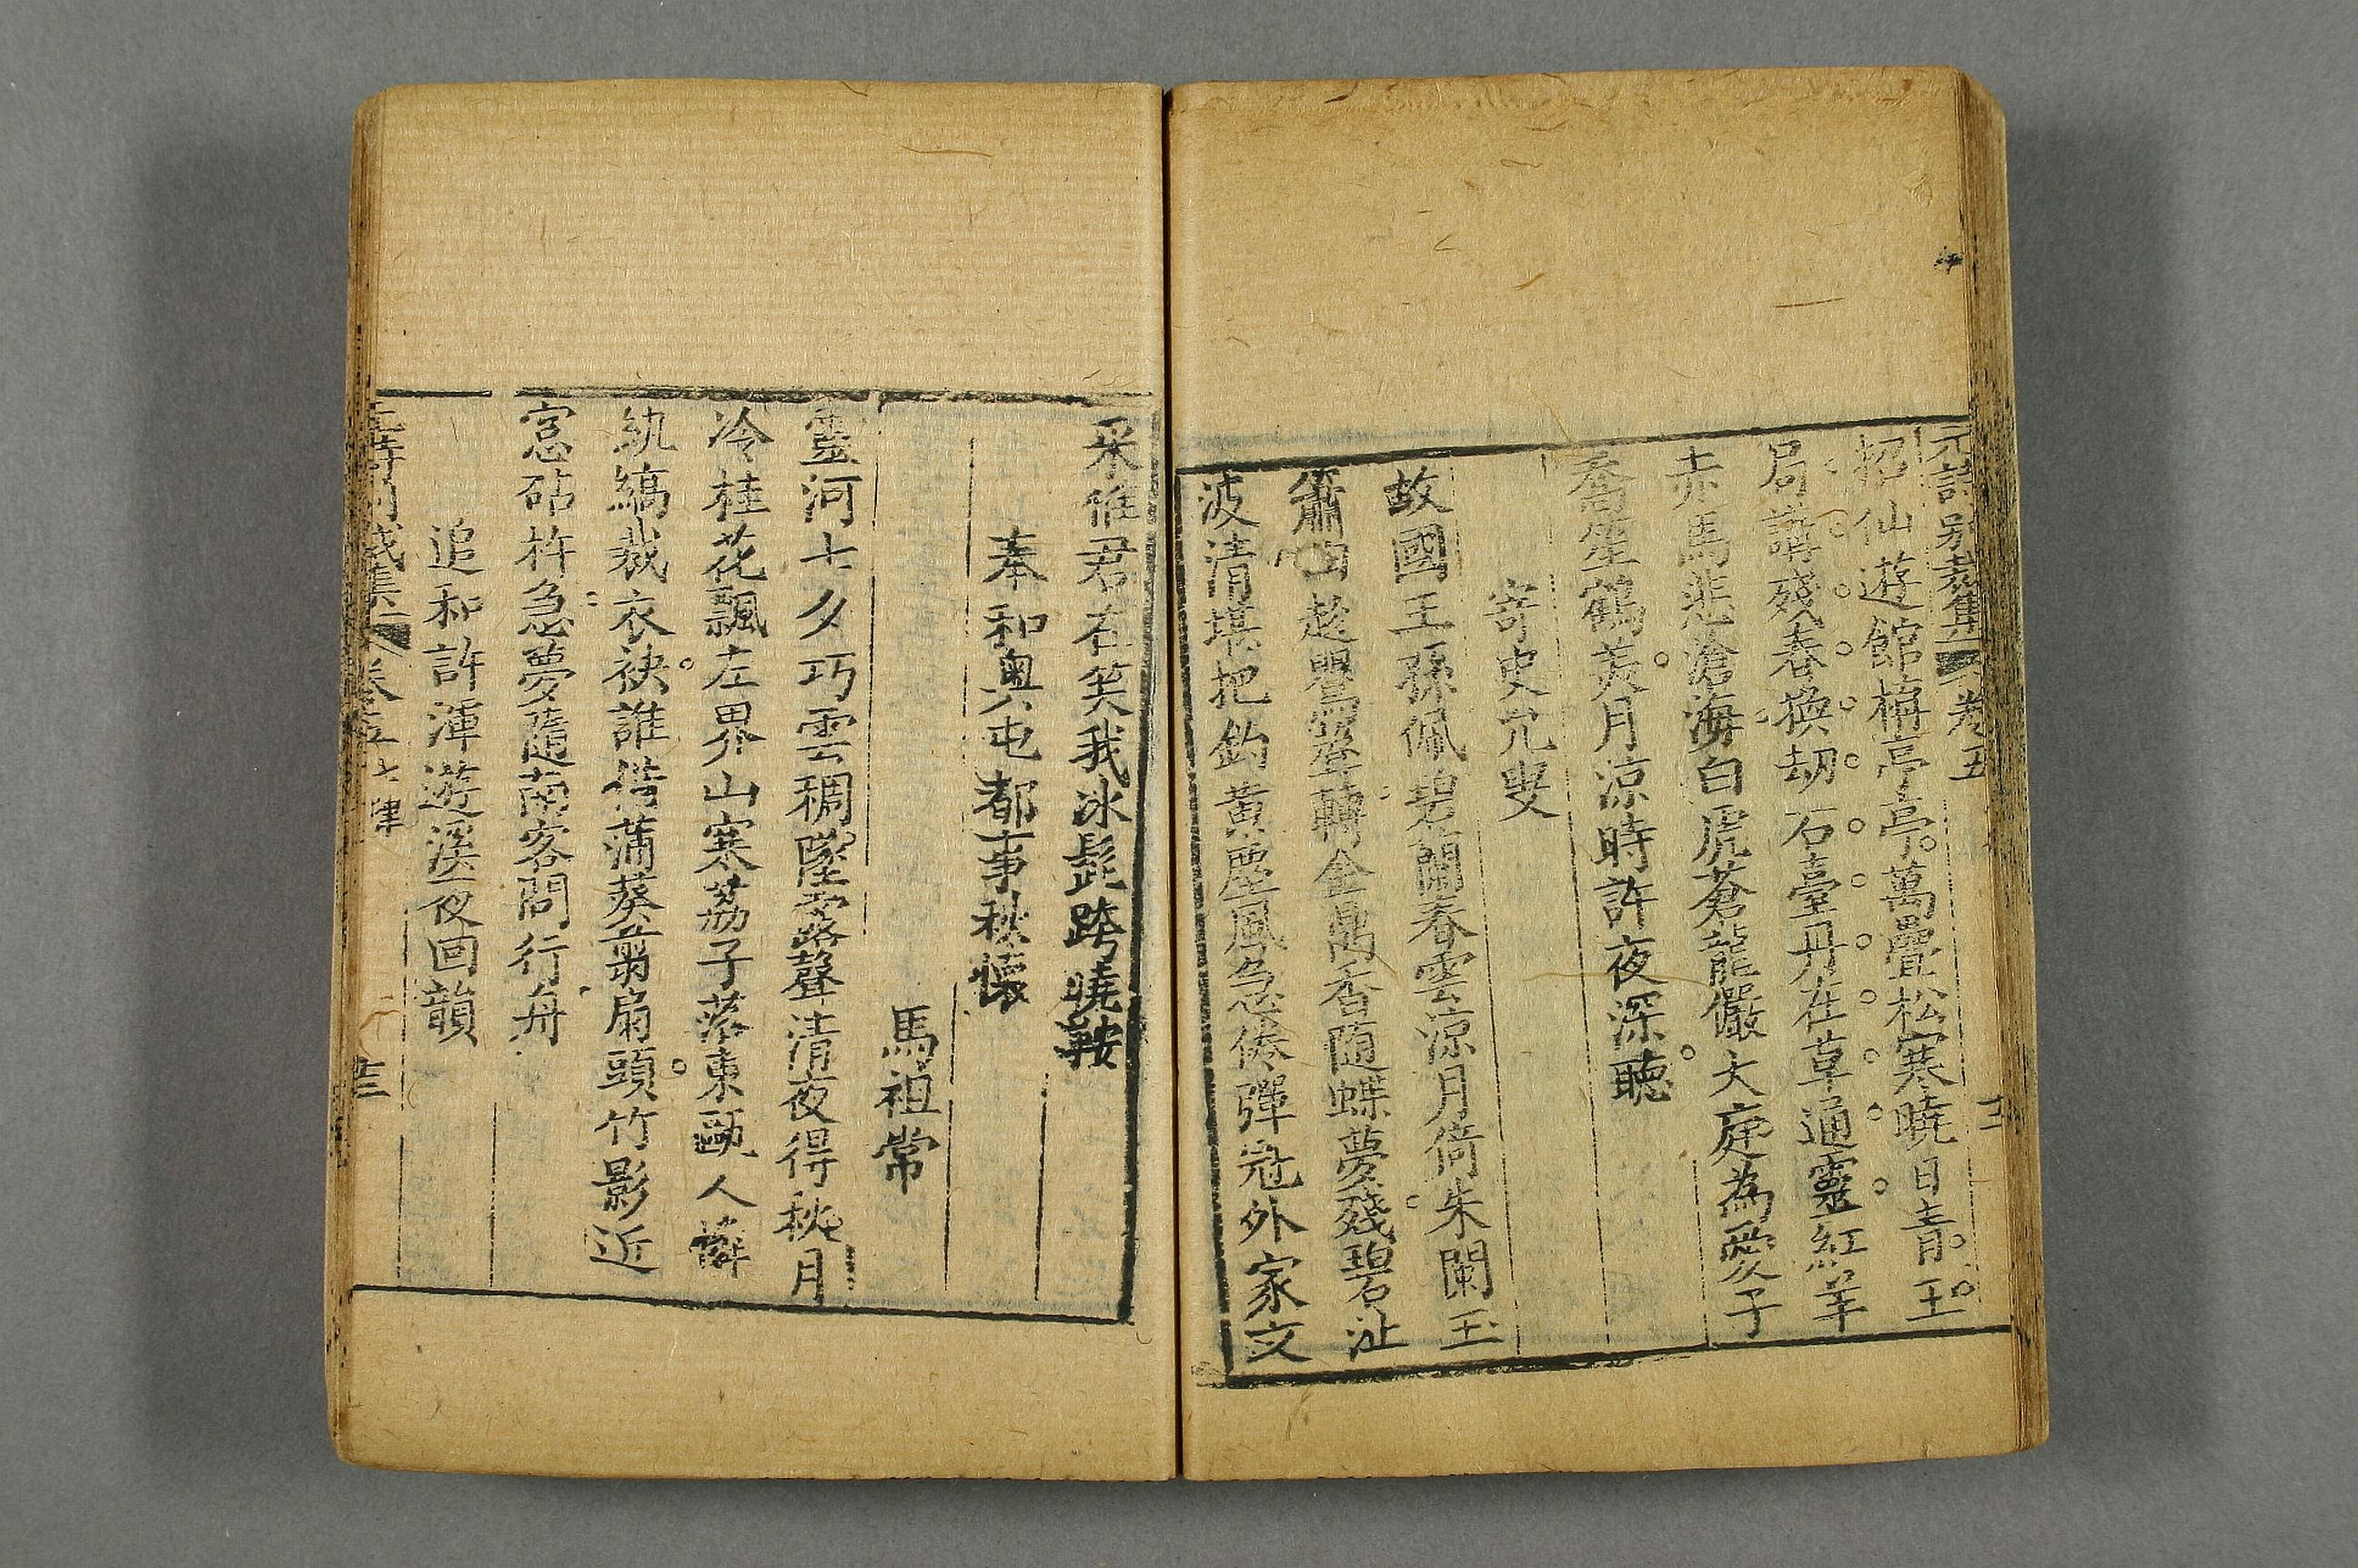 元詩別裁集 卷五 十二
招仙遊館榜亭亭萬疊松寒曉日青玉
局講殘春換劫石臺丹在草通靈紅羊
赤馬悲滄海白虎蒼龍儼大庭為愛子
喬笙鶴美月涼時許夜深聽
寄史允叟
故國王孫佩碧蘭春雲涼月倚朱闌玉
簫曲趁鶯聲轉金鳧香隨蝶夢殘碧沚
波清堪把釣黃塵風急倦彈冠外家文
采惟君在笑我冰髭跨曉鞍
奉和奥屯都事秋懷
馬祖常
靈河七夕巧雲稠墜露聲清夜得秋月
冷桂花飄左界山寒荔子落東甌人辭
紈縞裁衣袂誰借蒲葵翦扇頭竹影近
窓砧杵急夢隨南客問行舟
追和許渾遊溪夜回韻
元詩別裁集 卷五 七律 十三